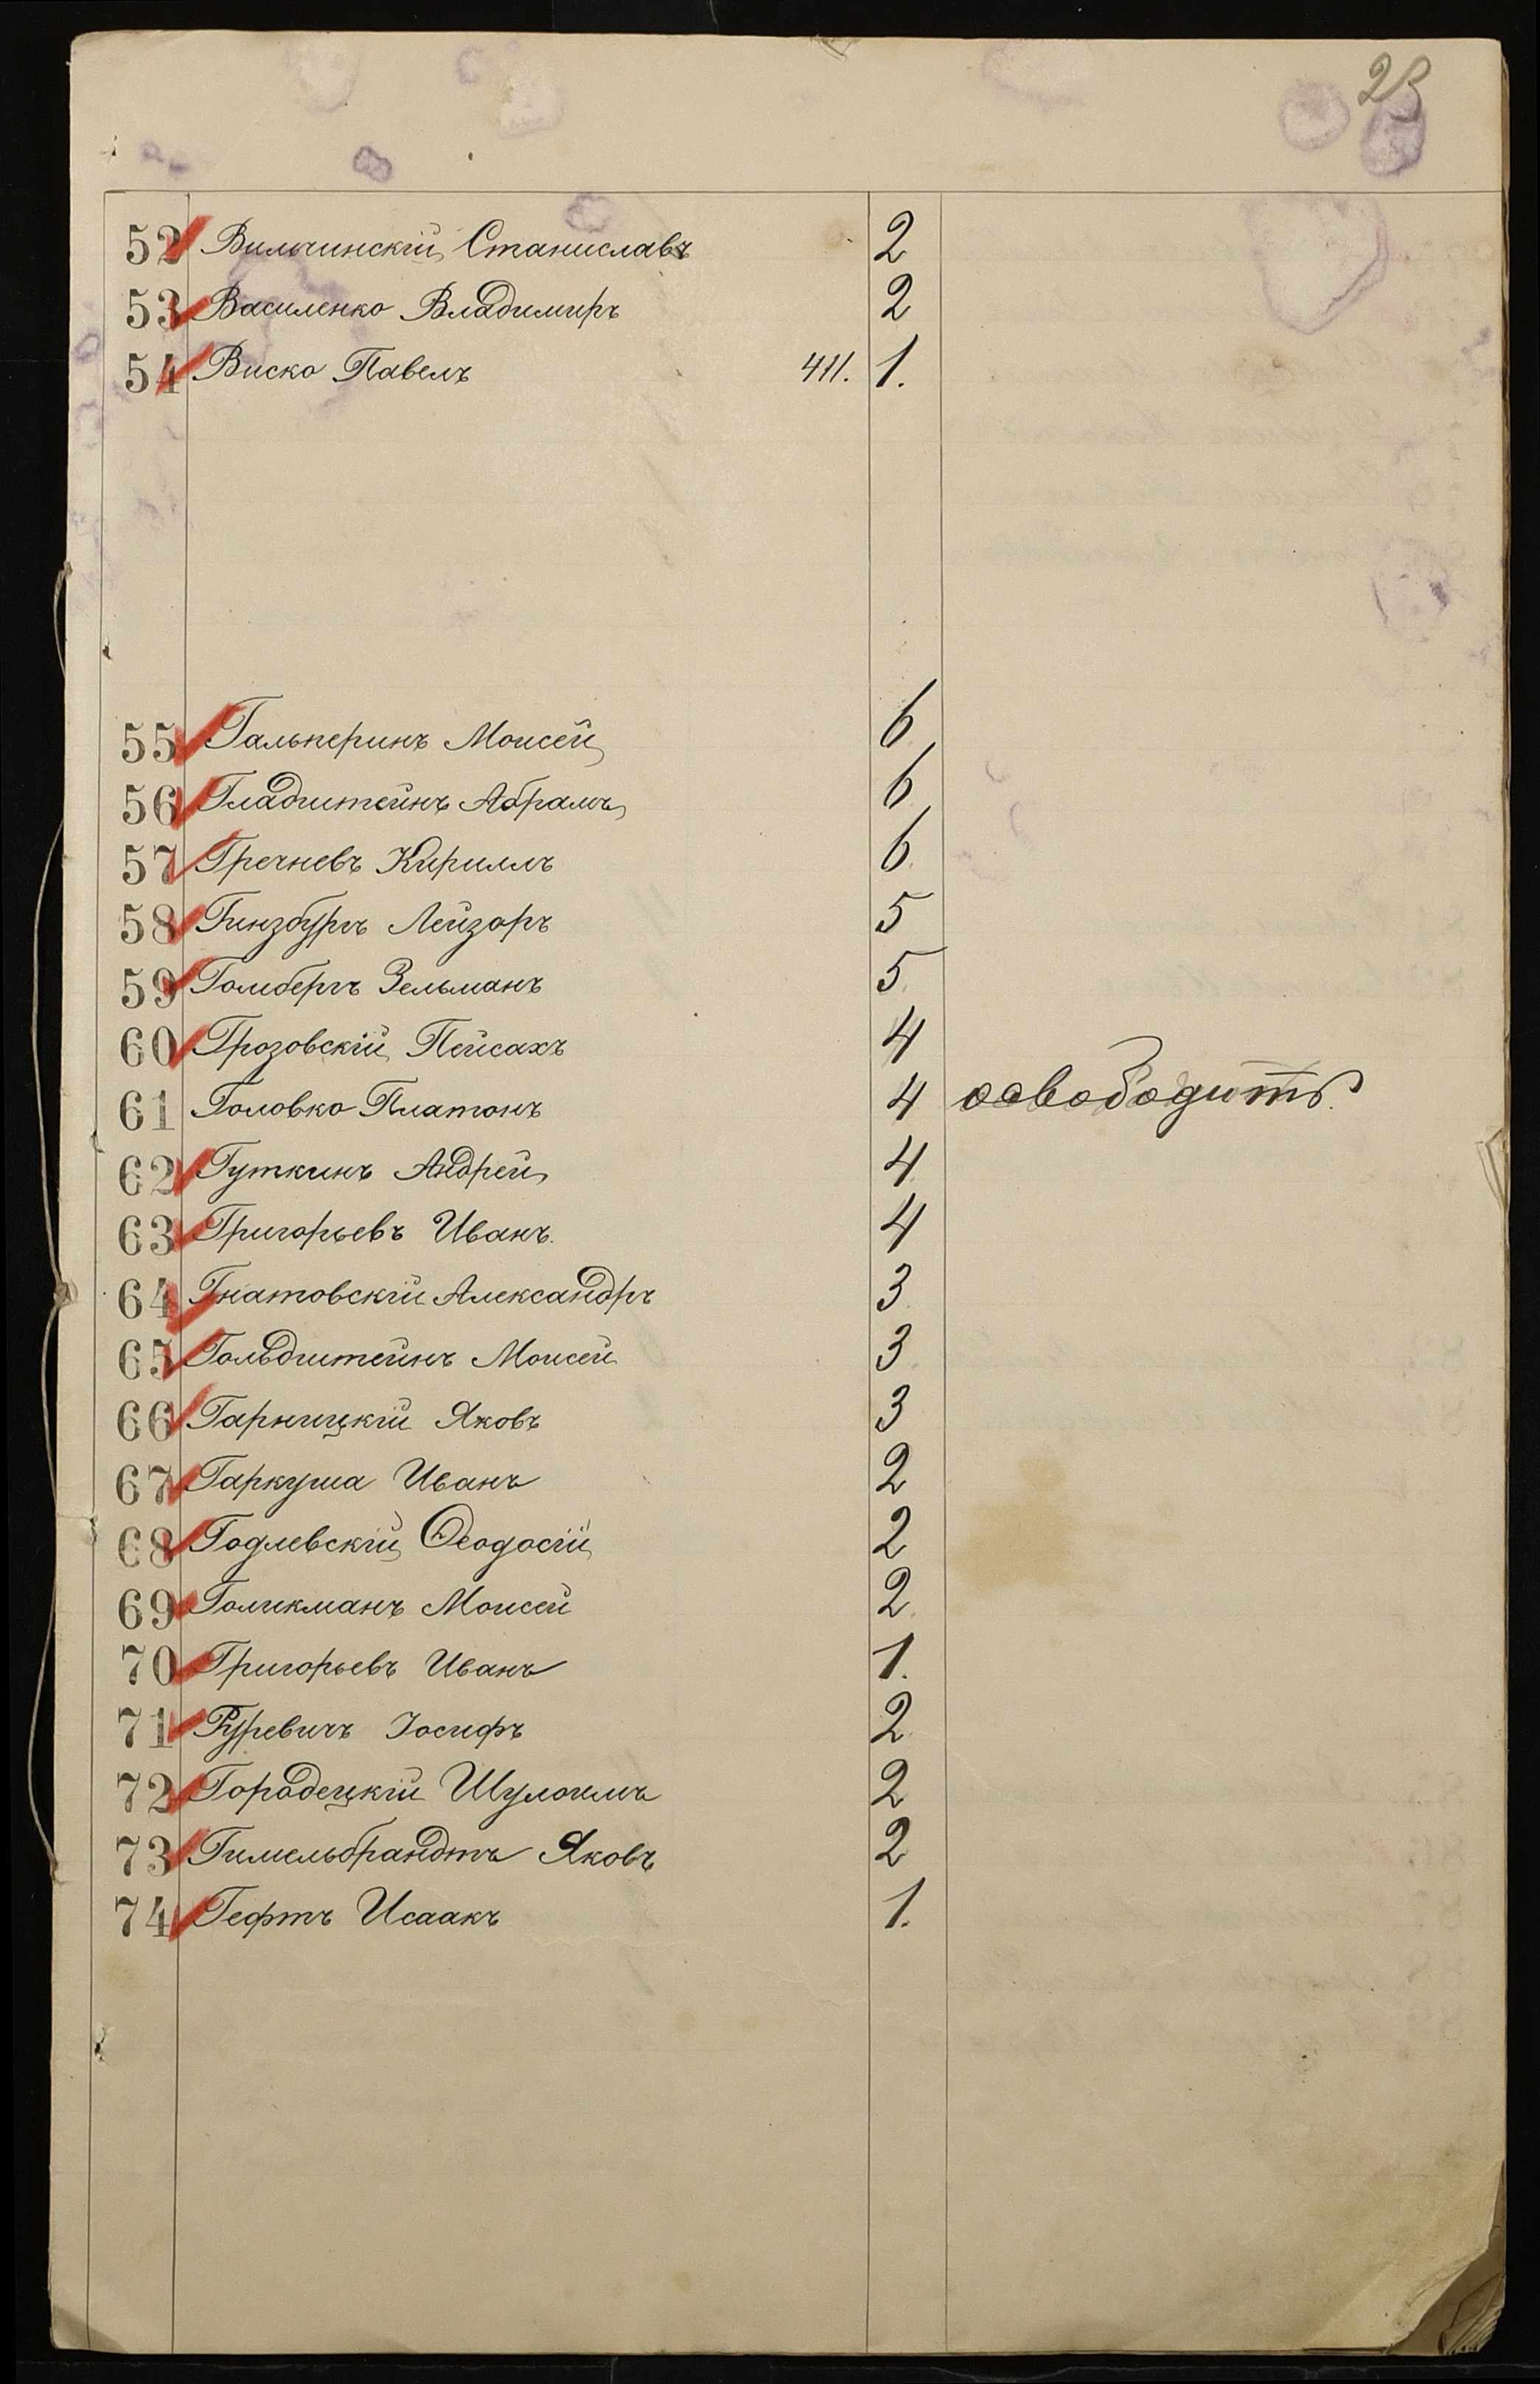 23
52 Вильчинскій Станиславъ 2
53 Василенко Владимиръ 2
54 Виско Павелъ 411. 1.
55 Гальперинъ Моисей 6
56 Гладштейнъ Абрамъ 6
57 Гречневъ Кириллъ 6.
58 Гинзбургъ Лейзоръ 5
59 Гомбергъ Зельманъ 5.
60 Грозовскій Пейсахъ 4
61 Головко Платонъ 4 освободитъ.
62 Гуткинъ Андрей 4
63 Григорьевъ Иванъ. 4
64 Гнатовскій Александръ 3
65 Гольдштейнъ Моисей 3
66 Гарницкій Яковъ 3
67 Гаркуша Иванъ 2
68 Годлевскій Ѳеодосій 2
69 Голикманъ Моисей 2
70 Григорьевъ Иванъ 1.
71 Гуревичъ Іосифъ 2
72 Городецкій Шулоимъ 2
73 Гимельбрандтъ Яковъ 2
74 Гефтъ Исаакъ 1.